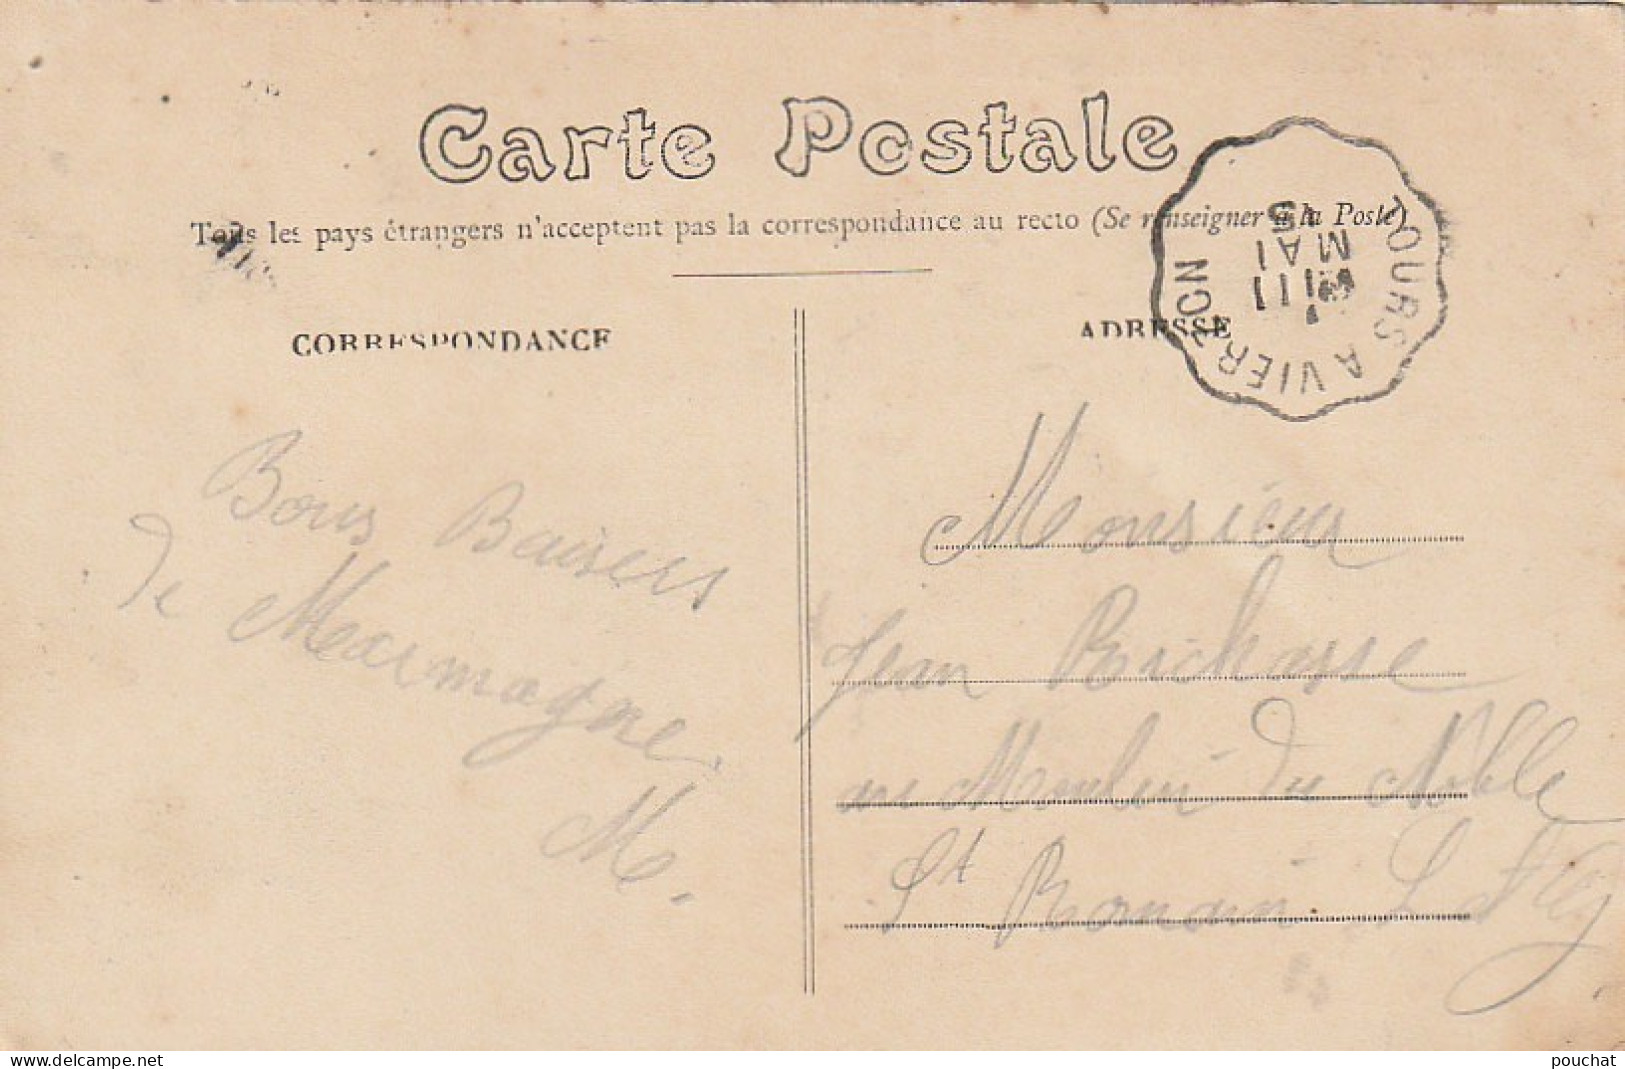 Carte Postale
Tous les pays étrangers n'acceptent pas la correspondance au recto (Se renseigner à la Poste)
CORRESPONDANCE
ADRESSE
TOURS A VIERZON
MAI
Bons Baisers
de Marmagne.
M.
Monsieur
Jean
au Moulin du Noble
St Romain
delcampe.net
pouchat